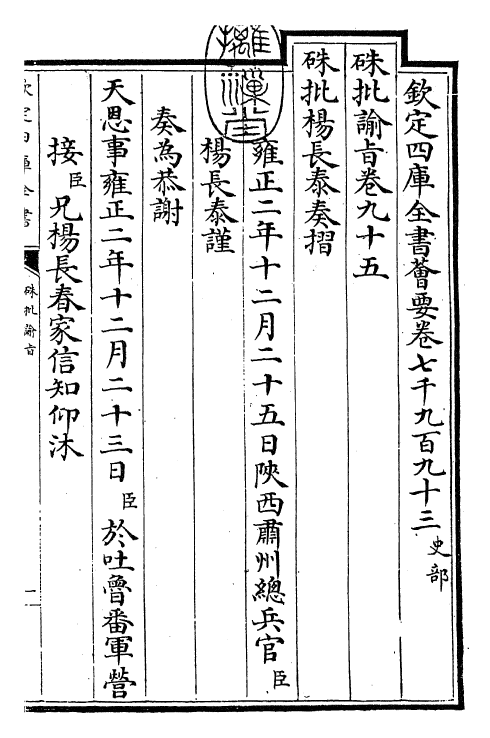 欽定四庫全書薈要卷七千九百九十三 史部
硃批諭旨卷九十五
硃批楊長泰奏摺
雍正二年十二月二十五日陝西肅州總兵官臣
楊長泰謹
奏為恭謝
天恩事雍正二年十二月二十三日臣於吐魯番軍營
接臣兄楊長春家信知仰沐
欽定四庫全書
硃批諭旨
一